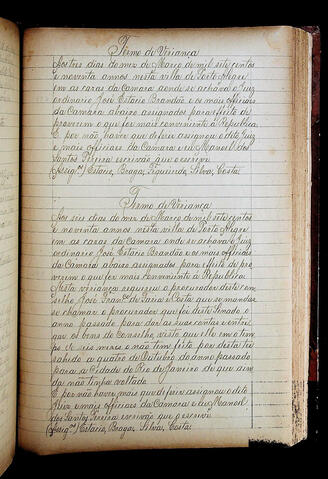 Termo de Viriança
Aos tres dias do mez de Março de mil site centos
e noventa annos nesta villa de Porto Alegre
em as cazas da Camara aonde se achava o Juiz
ordinario José Estacio Brandão e os mais officiaes
da Camara abaixo assignados para effeito de
proverem o que for mais conveniente á Republica.
E por não haver que deferir assignou o dito Juiz
e mais officiaes da Camara eu Manoel dos
Santos Pereira escrivão que o escrevi
Estacio, Braga, Figueiredo, Silva, Costa.
Termo de Viriança
Aos seis dias do mez de Março de mil site centos
e noventa annos nesta villa de Porto Alegre
em as cazas da Camara onde se achava o Juiz
ordinario José Estacio Brandão e os mais officiaes
da Camara abaixo assignados para effeito de pro
verem o que for mais conveniente á Republica
Nesta viriança requereu o procurador deste con
selho José Franco de Faria e Costa que se mandas
se chamar o procurador que foi deste Senado o
anno passado para dar as suas contas e entre
gar os bens do Conselho, visto que elle em o tem
po de seis mezes o não tem feito por desta ter
sahido a quatro de Outubro do anno passado
para a Cidade do Rio de Janeiro de que ain
da não tinha voltado.
E por não haver mais que deferir assignou o dito
Juiz e mais officiaes da Camara e eu Manoel
dos Santos Pereira escrivão que o escrevi
Estacio, Braga, Silva, Costa.